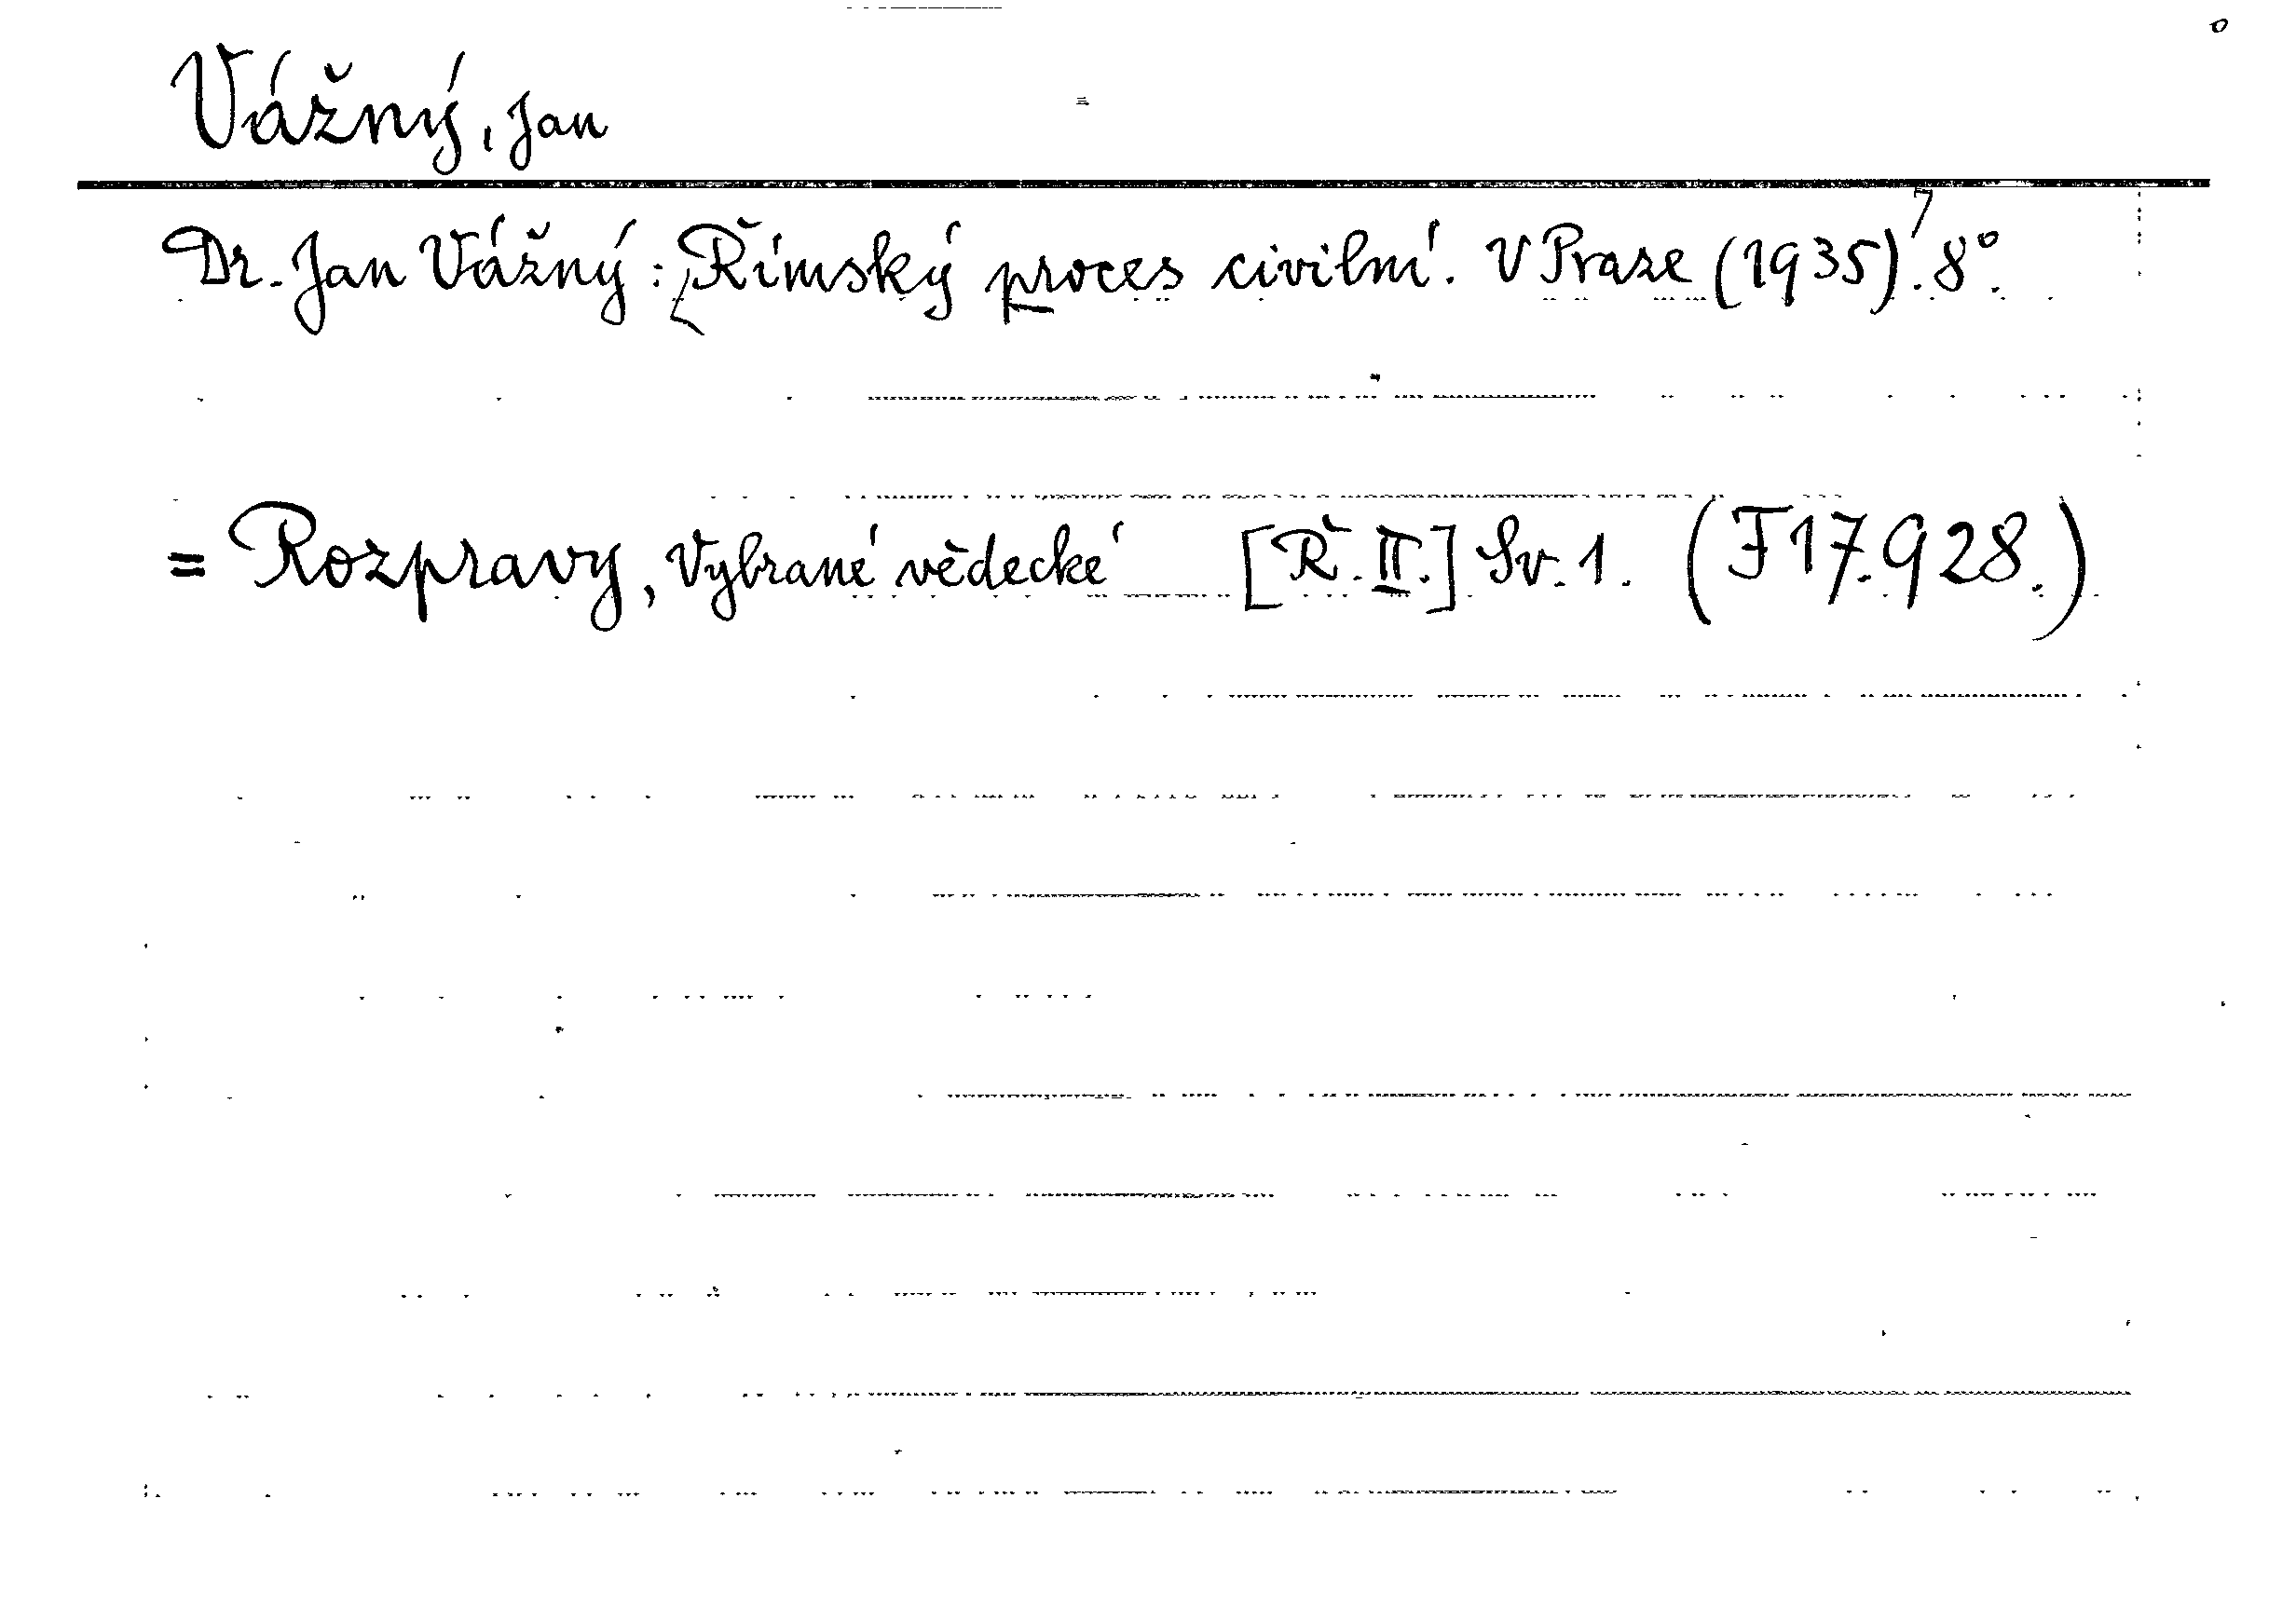 Vážný, Jan
Dr. Jan Vážný: Římský proces civilní. V Praze (1935). 8°.
= Rozpravy, Vybrané vědecké [Ř. II.] Sv. 1. (F 17.928.)